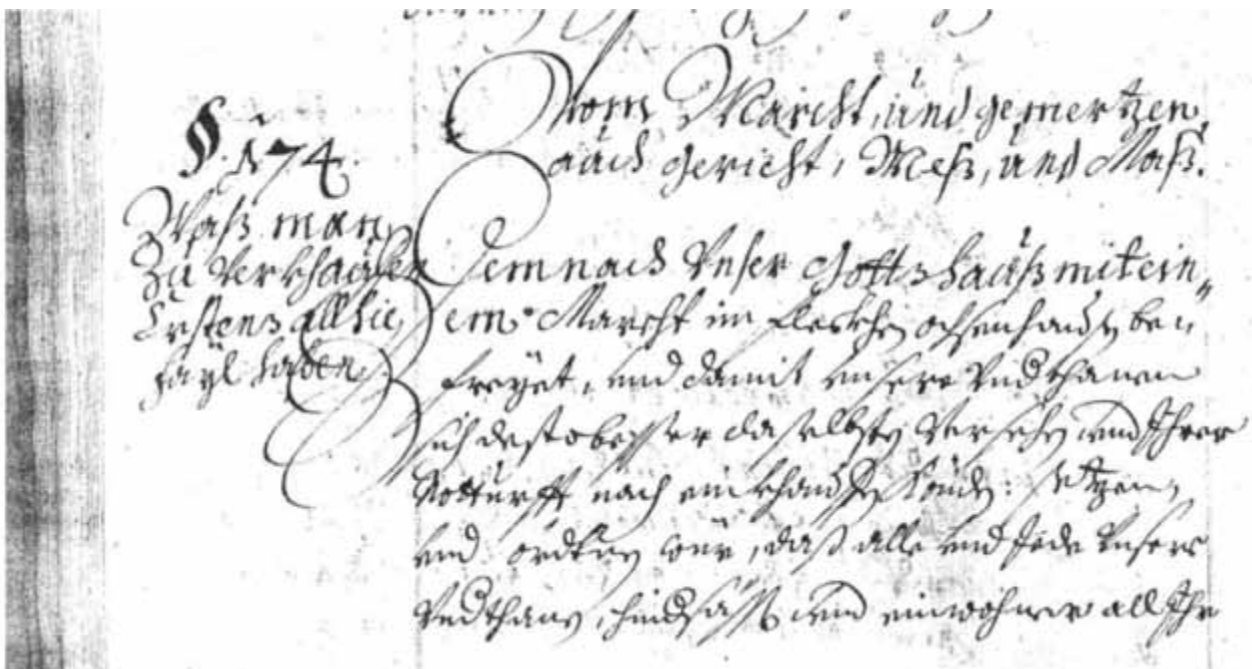 §. 174.
Waß man
zu verkhauffen
Erstens allhie
fayl haben.
Vom Marckt, und gemertzen,
auch gericht, Meß, und Maß.
Demnach Unser Gottshauß mit ein„
em Marckht im fleckhen ochsenhausen be„
freyet, und damit unsere Underthanen
sich desto besser daselbsten versehen und Ihrer
Notturfft nach einkhauffen könden: setzen
und ordnen wür, daß alle und Jede unsere
Underthanen, hindersäß und einwohner all Ihr